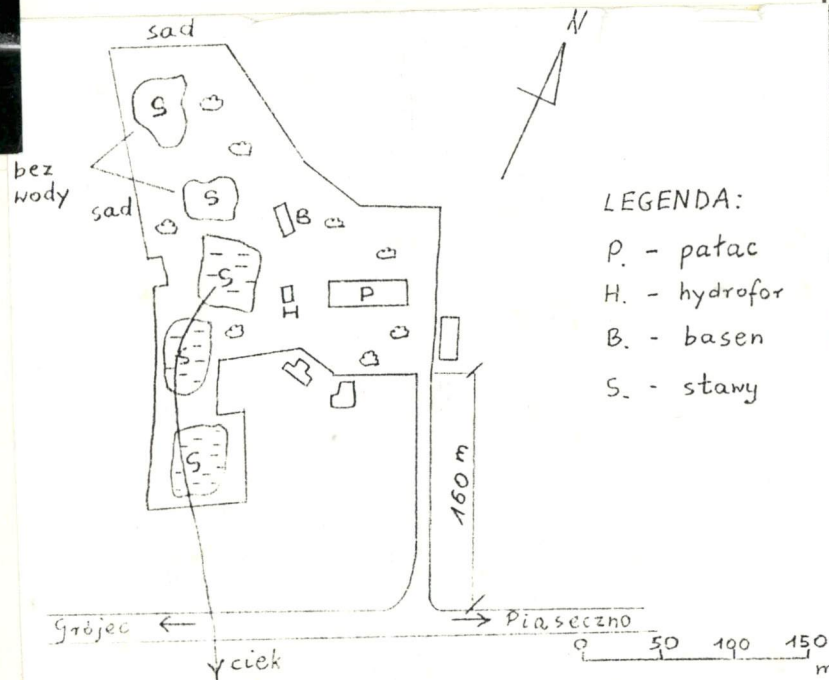 sad
N
S
bez
wody
S
sad
B
S
H
P
S
S
LEGENDA:
P. - pałac
H. - hydrofor
B. - basen
S. - stawy
160 m
Grójec ← → Piaseczno
ciek
0 50 100 150
m